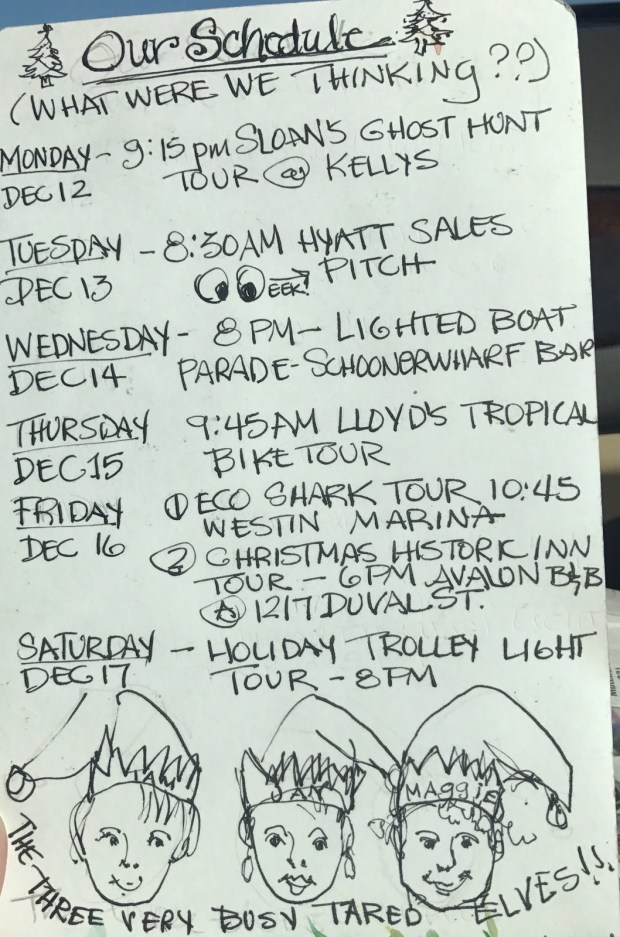 Our Schedule
(WHAT WERE WE THINKING??)
MONDAY - 9:15 pm SLOAN'S GHOST HUNT
DEC 12 TOUR @ KELLYS
TUESDAY - 8:30AM HYATT SALES
DEC 13 EEK! PITCH
WEDNESDAY - 8 PM - LIGHTED BOAT
DEC 14 PARADE - SCHOONERWHARF BAR
THURSDAY 9:45AM LLOYD'S TROPICAL
DEC 15 BIKE TOUR
FRIDAY ① ECO SHARK TOUR 10:45
DEC 16 WESTIN MARINA
② CHRISTMAS HISTORIC INN
TOUR - 6PM AVALON B&B
@ 1217 DUVAL ST.
SATURDAY - HOLIDAY TROLLEY LIGHT
DEC 17 TOUR - 8PM
JAN MAGGIE
THE THREE VERY BUSY TARED ELVES!!